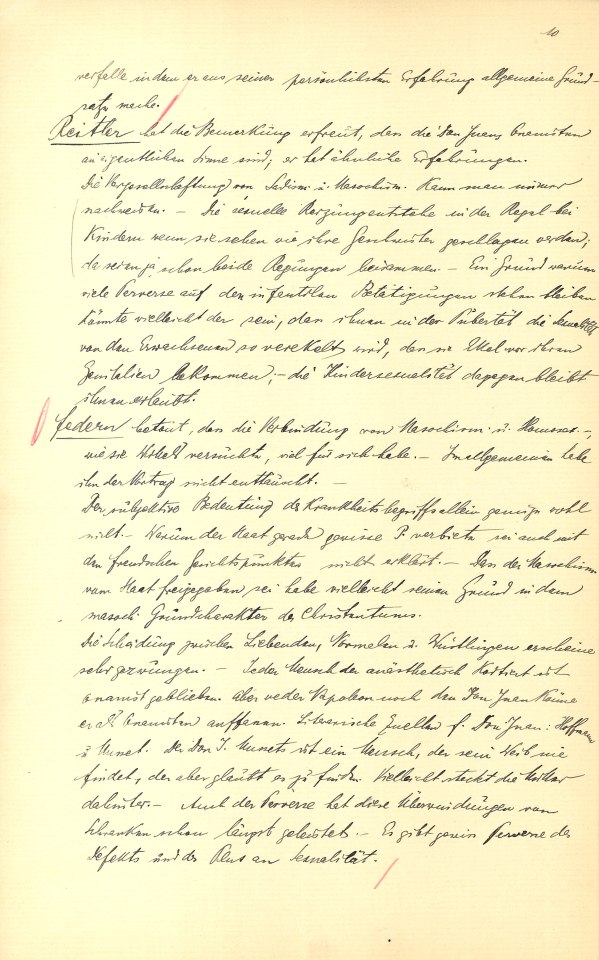 10
verfalle indem er aus seiner persönlichsten Erfahrung allgemeine Grund-
sätze mache.
Reitler hat die Bemerkung erfreut, dass die Don Juans Onanisten
im eigentlichen Sinne sind; er hat ähnliche Erfahrungen.
Die Vergesellschaftung von Sadism. u. Masochism. kann man immer
nachweisen. – Die sexuelle Reizung entstehe in der Regel bei
Kindern wenn sie sehen wie ihre Geschwister geschlagen werden;
da seien ja schon beide Regungen beisammen. – Ein Grund warum
viele Perverse auf den infantilen Betätigungen stehen bleiben
könnte vielleicht der sein, dass ihnen in der Pubertät die Sexualität
von den Erwachsenen so verekelt wird, dass sie Ekel vor ihren
Genitalien bekommen; – die Kindersexualität dagegen bleibt
ihnen erlaubt.
Federn betont, dass die Verbindung von Masochism. u. Homosex. –,
wie sie Stekel versuchte, viel für sich habe. – Im allgemeinen habe
ihn der Vortrag nicht enttäuscht. –
Der subjektive Bedeutung des Krankheitsbegriffs allein genüge wohl
nicht. – Warum der Staat gerade gewisse P. verbiete sei auch mit
den Freudschen Gesichtspunkten nicht erklärt. – Dass der Masochism
vom Staat freigegeben sei habe vielleicht seinen Grund in dem
masoch. Grundcharakter des Christentums.
Die Scheidung zwischen Liebenden, Normalen u. Wüstlingen erscheine
sehr gezwungen. – Jeder Mensch der anästhetisch koitiert ist
Onanist geblieben. aber weder Napoleon noch den Don Juan könne
er als Onanisten auffassen. Literarische Quellen f. Don Juan: Hoffmann
u. Musset. Der Don J. Mussets ist ein Mensch, der sein Weib nie
findet, der aber glaubt es zu finden. Vielleicht steckt die Mutter
dahinter. – Auch der Perverse hat diese Überwindungen von
Schranken schon längst geleistet. – Es gibt gewiss Perverse des
Defekts und des Plus an Sexualität.